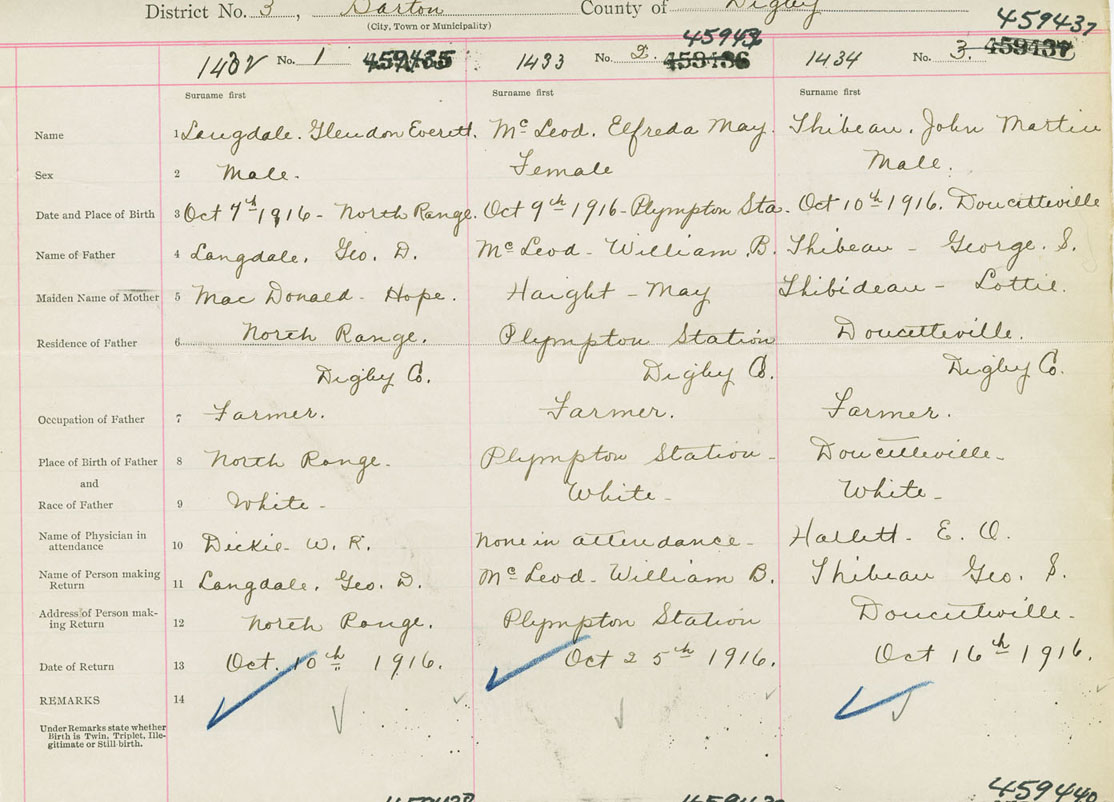 District No. 3, Barton County of Digby
(City, Town or Municipality)
459437
1432 No. 1 459435 1433 No. 2. 459436 1434 No. 3. 459437
Surname first Surname first Surname first
Name 1 Langdale. Glendon Everett. McLeod. Elfreda May. Thibeau. John Martin
Sex 2 Male. Female Male.
Date and Place of Birth 3 Oct 7th 1916 - North Range. Oct 9th 1916 - Plympton Sta. Oct 10th 1916. Doucetteville
Name of Father 4 Langdale. Geo. D. McLeod - William B. Thibeau - George. S.
Maiden Name of Mother 5 Mac Donald - Hope. Haight - May Thibideau - Lottie.
Residence of Father 6 North Range. Plympton Station Doucetteville.
Digby Co. Digby Co. Digby Co.
Occupation of Father 7 Farmer. Farmer. Farmer.
Place of Birth of Father 8 North Range. Plympton Station - Doucetteville -
and
Race of Father 9 White - White - White -
Name of Physician in
attendance 10 Dickie - W. R. None in attendance - Hallett - E. O.
Name of Person making
Return 11 Langdale. Geo. D. McLeod - William B. Thibeau Geo. S.
Address of Person mak-
ing Return 12 North Range. Plympton Station Doucetteville -
Date of Return 13 Oct. 10th 1916. Oct 25th 1916. Oct 16th 1916.
REMARKS 14
Under Remarks state whether
Birth is Twin, Triplet, Ille-
gitimate or Still-birth.
459440